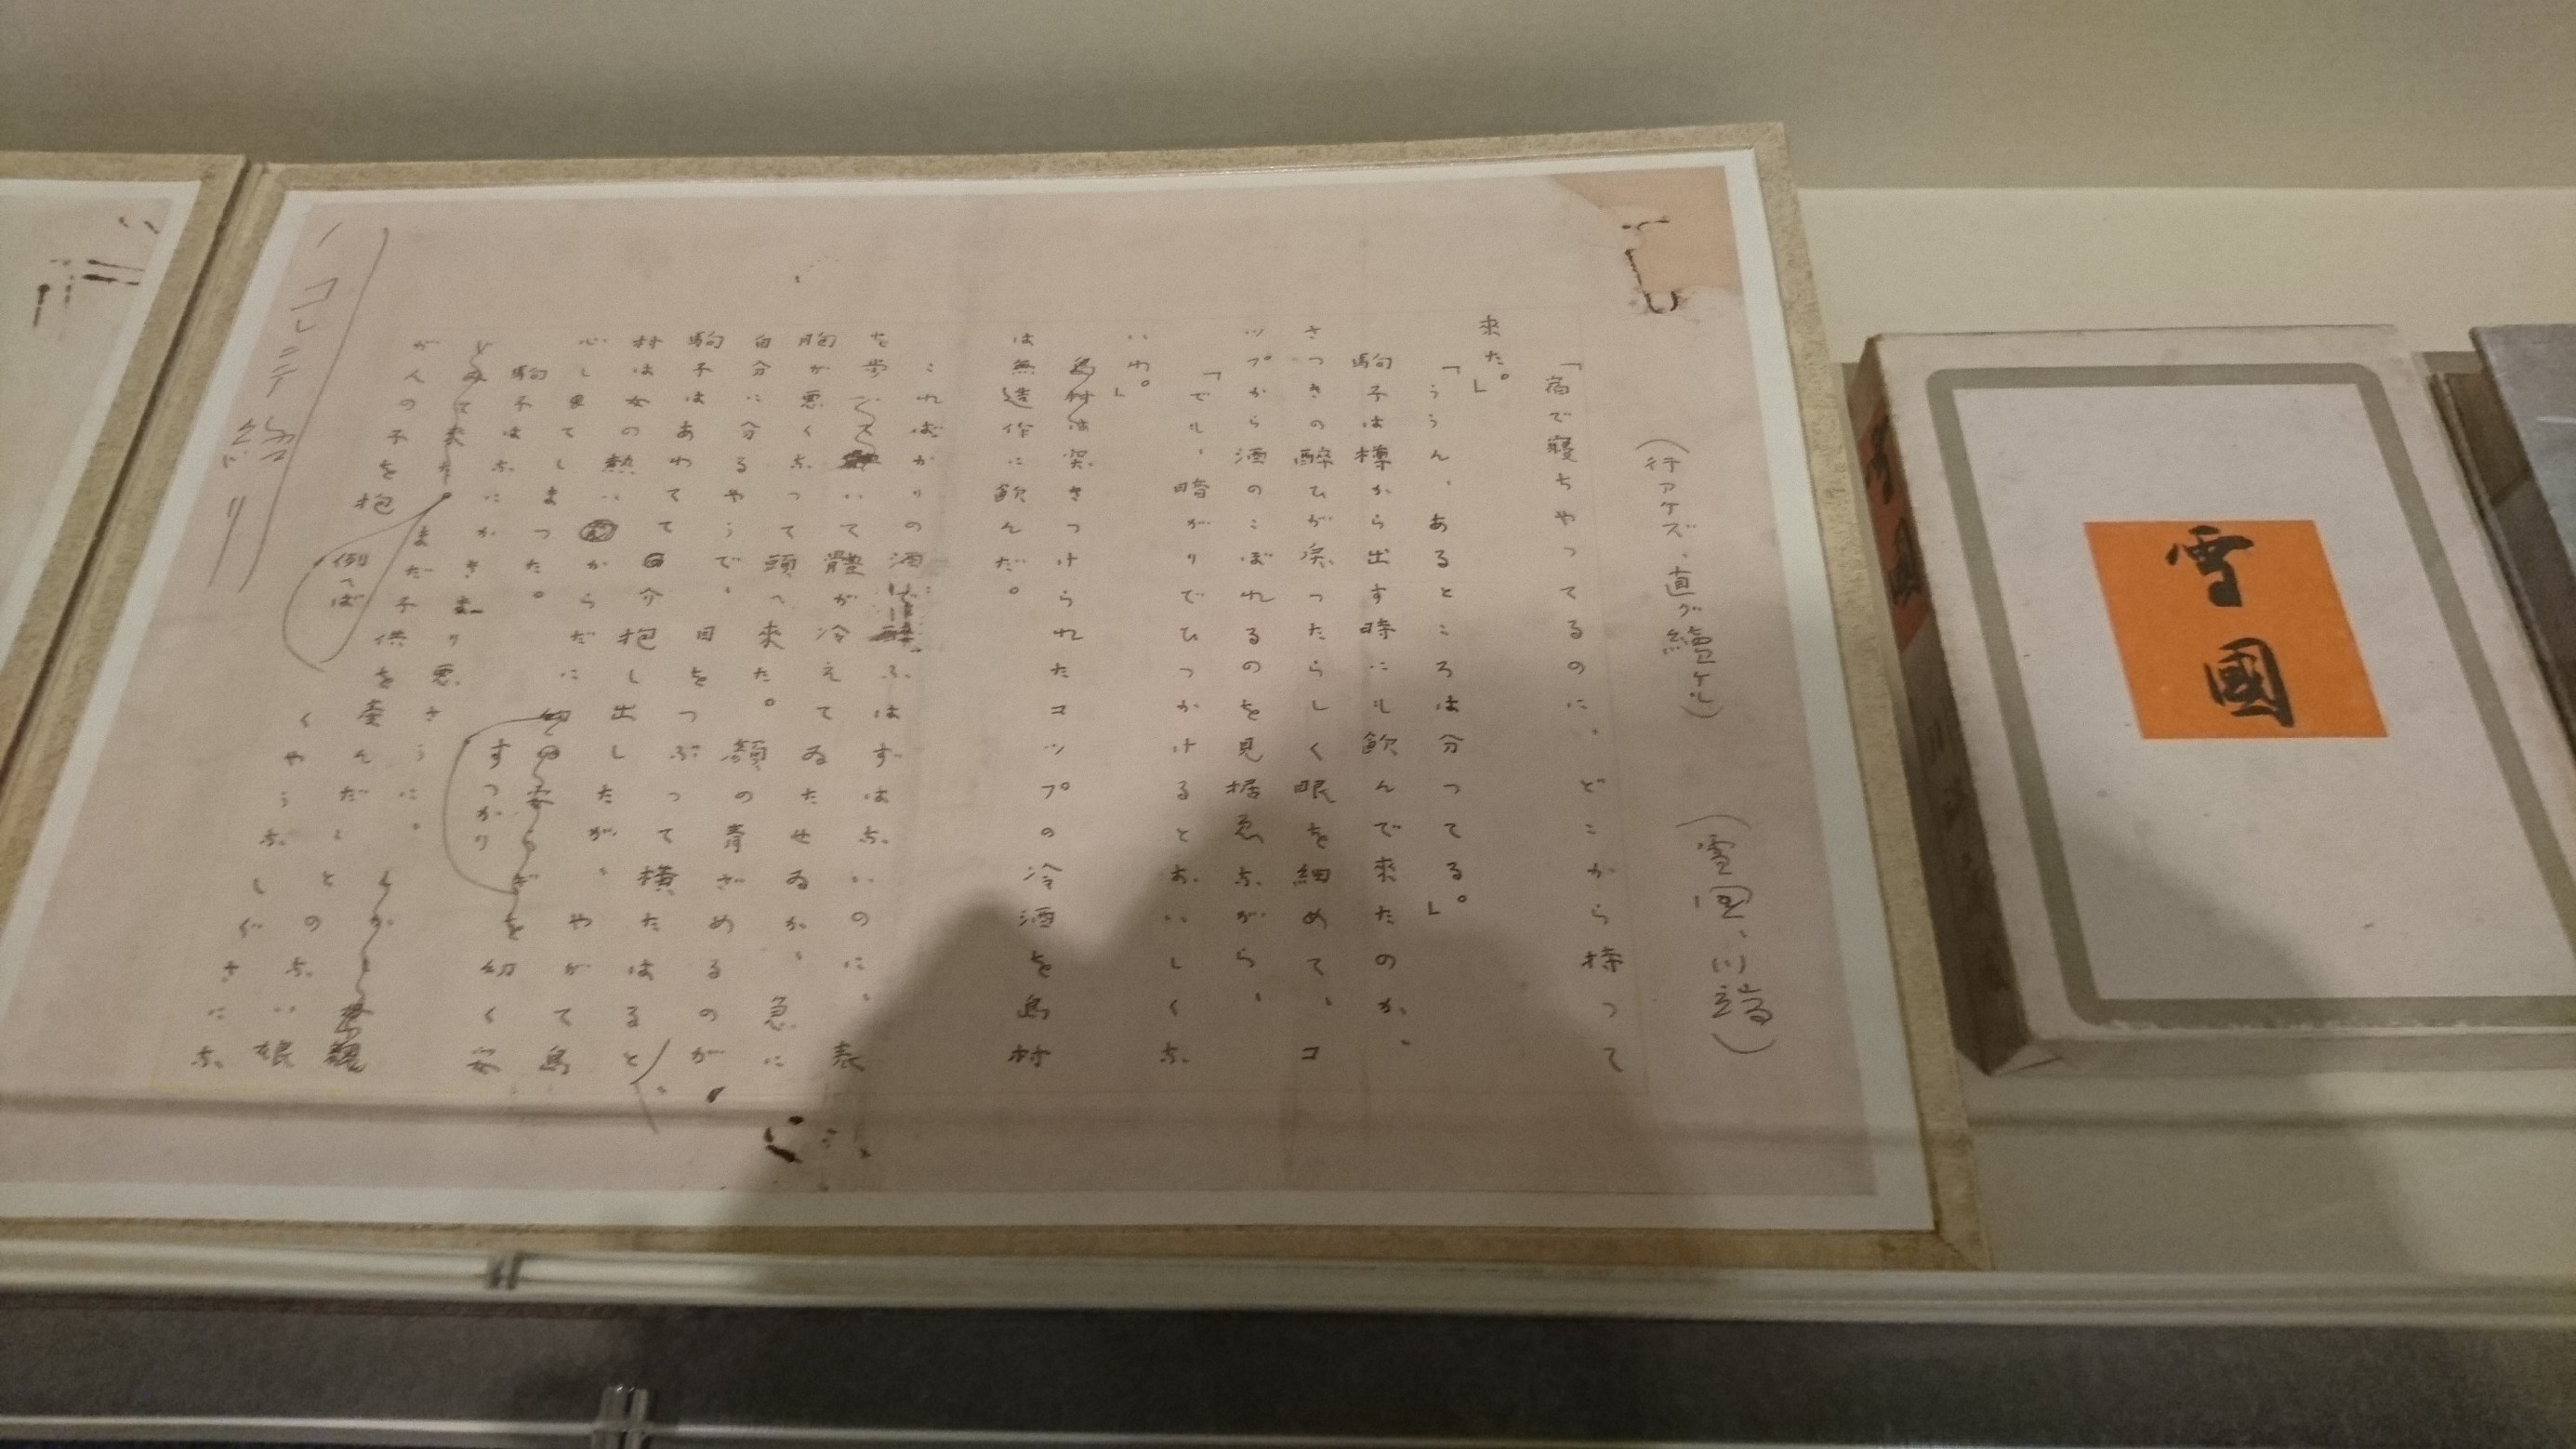 （雪国、川端）
（行アケズ、直グ續ケル）
「宿で寝ちやつてるのに、どこから持つて
来た。」
「ううん、あるところは分つてる。」
駒子は樽から出す時にも飲んで来たのか、
さつきの醉ひが戻つたらしく眼を細めて、コ
ツプから酒のこぼれるのを見据ゑながら、
「でも、暗がりでひつかけるとおいしくな
いわ。」
突きつけられたコツプの冷酒を島村
は無造作に飲んだ。
こればかりの酒で醉ふはずはないのに、表
を歩いて體が冷えてゐたせゐか、急に
胸が悪くなつて頭へ來た。顔の青ざめるのが
自分に分るやうで、目をつぶつて横たはると、
駒子はあわてて介抱し出したが、やがて島
村は女の熱いからだにすつかり幼く安
心してしまつた。
駒子はなにかきまり悪さうに、例へば
まだ子供を産んだことのない娘
が人の子を抱くやうなしぐさにな
コレニテ終リ
雪國